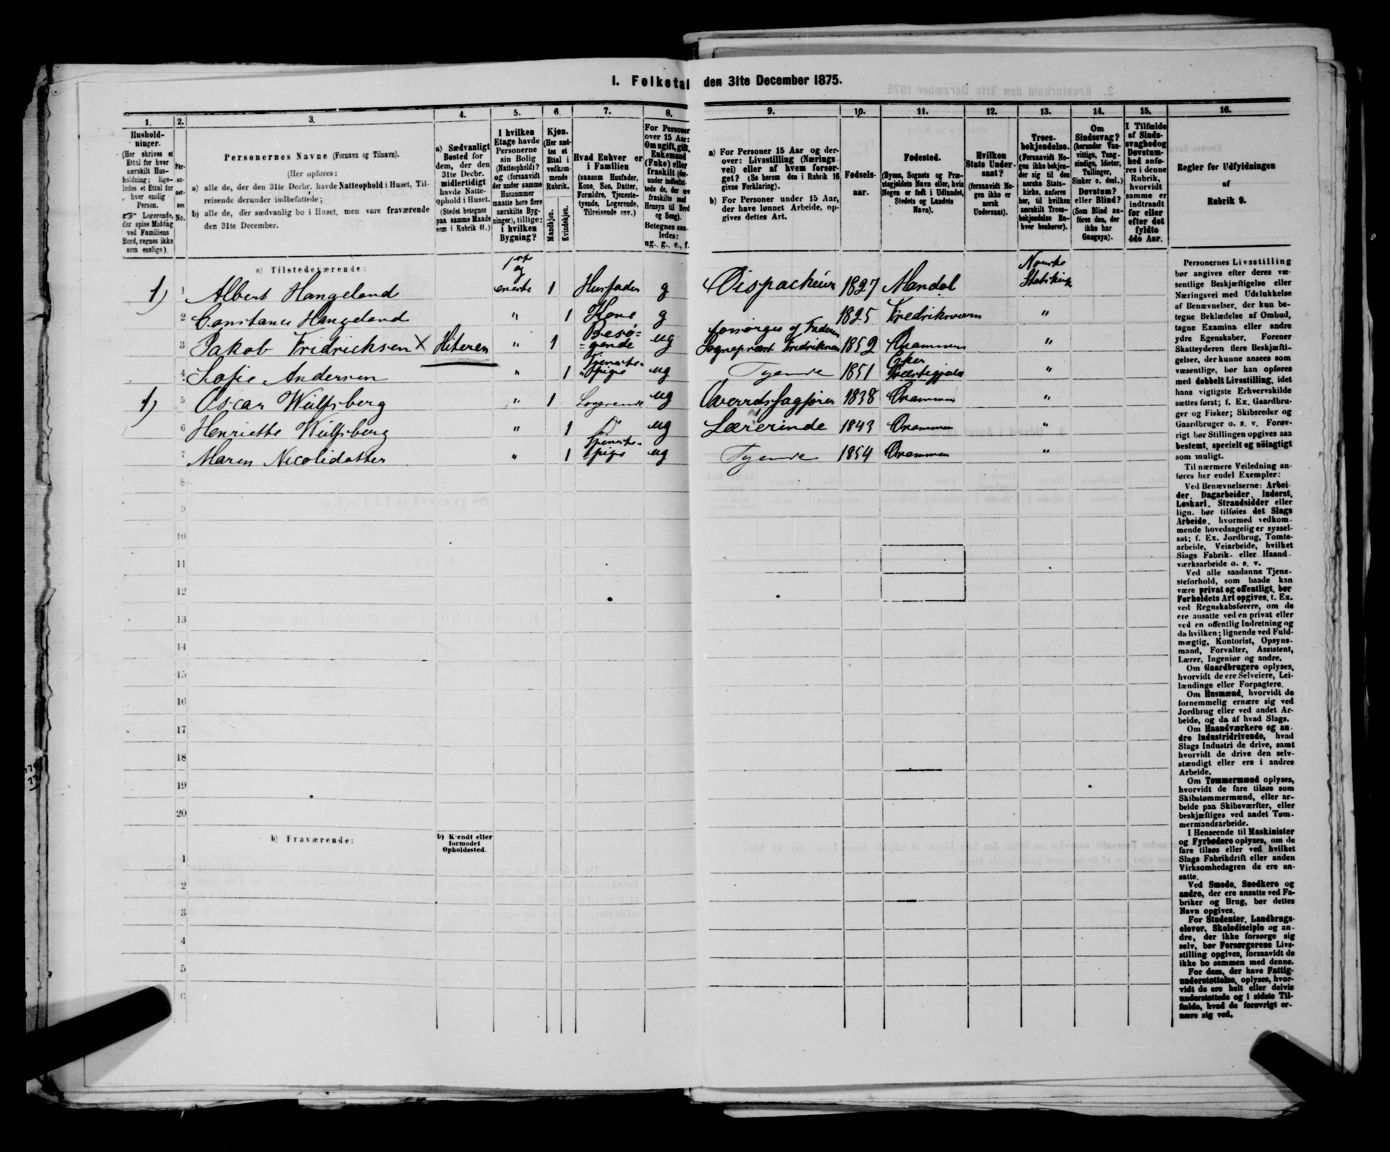 I. Folketal den 31te December 1875.
1. 2. 3. 4. 5. 6. 7. 8. 9. 10. 11. 12. 13. 14. 15. 16.
Hushold-
ninger.
(Her skrives et
Ettal for hver
særskilt Hus-
holdning; lige-
ledes et Ettal for
hver enslig
Person.
☞ Logerende,
der spise Middag
ved Familiens
Bord, regnes ikke
som enslige).
Personernes Navne (Fornavn og Tilnavn).
(Her opføres:
a) alle de, der den 31te Decbr. havde Natteophold i Huset, Til-
reisende derunder indbefattede;
b) alle de, der sædvanlig bo i Huset, men vare fraværende
den 31te December.
a) Sædvanligt
Bosted for
dem, der den
31te Decbr.
midlertidigt
havde Natte-
ophold i Huset.
(Stedet betegnes
paa samme Maade
som i Rubrik 11.)
I hvilken
Etage havde
Personerne
sin Bolig
(Natteophold)?
og (forsaavidt
der under samme
Husnummer
maatte høre flere
særskilte Byg-
ninger), tillige:
i hvilken
Bygning?
Kjøn.
(Her sæt-
tes et
Ettal i
vedkom-
mende
Rubrik.
Mandkjøn.
Kvindekjøn.
Hvad Enhver er
i Familien
(saasom Husfader,
Kone, Søn, Datter,
Forældre, Tjeneste-
tydende, Logerende,
Tilreisende osv.)
For Personer
over 15 Aar:
Om ugift, gift,
Enkemand
(Enke) eller
fraskilt
Betegnes saa-
ledes:
ug., g., e., f.
a) For Personer 15 Aar og der-
over: Livsstilling (Nærings-
vei) eller af hvem forsør-
get? (Se herom den i Rubrik 16
givne Forklaring).
b) For Personer under 15 Aar,
der have lønnet Arbeide, op-
gives dettes Art.
Fødsels-
aar.
Fødested.
(Byens, Sognets og Præ-
stegjeldets Navn eller, hvis
Nogen er født i Udlandet,
Stedets og Landets
Navn).
Hvilken
Stats Under-
saat?
(forsaavidt No-
gen ikke er
norsk
Undersaat).
Troes-
bekjendelse.
(Forsaavidt No-
gen ikke bekjen-
der sig til den
norske Stats-
kirke, anføres
her, til hvilken
særskilt Troes-
bekjendelse En-
hver henhører).
Om
Sindssvag?
(herunder Van-
vittige, Tung-
sindige, Idioter,
Tullinger,
Sinker o. desl.)
Døvstum?
eller Blind?
(Som Blind an-
føres den, der
ikke har
Gangsyn).
I Tilfælde
af Sinds-
svaghed og
Døvstum-
hed anfø-
res i denne
Rubrik,
hvorvidt
samme er
indtraadt
før eller
efter det
fyldte
4de Aar.
Regler for Udfyldningen
af
Rubrik 9.
a) Tilstedeværende:
1) 1 Albert Hangeland 1ste og øverste 1 Husfader g Dispacheur 1827 Mandal Norske Statskirke
2 Constance Hangeland " 1 Kone g 1825 Fredriksværn "
3 Jakob Fridricksen X Hiteren " 1 Besø-gende ug Forsørges af Faderen Sognepræst Fredriksen 1852 Drammen "
4 Sofie Andersen " 1 Tjeneste-pige ug Tyende 1851 Eker Præstegjeld "
1) 5 Oscar Wulfsberg " 1 Logerende ug Overretssagfører 1838 Drammen "
6 Henriette Wulfsberg " 1 D° ug Lærerinde 1843 Drammen "
7 Maren Nicolidatter " 1 Tjeneste-pige ug Tyende 1854 Drammen "
8
9
10
11
12
13
14
15
16
17
18
19
20
b) Fraværende:
b) Kjendt eller
formodet
Opholdssted.
1
2
3
4
5
6
Personernes Livsstilling
bør angives efter deres væ-
sentlige Beskjæftigelse eller
Næringsvei med Udelukkelse
af Benævnelser, der kun be-
tegne Beklædelse af Ombud,
tagne Examina eller andre
ydre Egenskaber. Forener
Skatteyderen flere Beskjæfti-
gelser, der kunne ansees som
væsentlige, bør han opføres
med dobbelt Livsstilling, idet
hans vigtigste Erhvervskilde
sættes først; f. Ex. Gaardbru-
ger og Fisker; Skibsreder og
Gaardbruger o. s. v. Forøv-
rigt bør Stillingen opgives saa
bestemt, specielt og nøiagtigt
som muligt.
Til nærmere Veiledning an-
føres her endel Exempler:
Ved Benævnelserne: Arbei-
der, Dagarbeider, Inderst,
Løskarl, Strandsidder eller
lign. bør tilføies det Slags
Arbeide, hvormed vedkom-
mende hovedsagelig er syssel-
sat; f. Ex. Jordbrug, Tomte-
arbeide, Veiarbeide, hvilket
Slags Fabrik- eller Haand-
værksarbeide o. s. v.
Ved alle saadanne Tjene-
steforhold, som baade kan
være privat og offentligt, bør
Forholdets Art opgives, t. Ex.
ved Regnskabsførere, om de
ere ansatte ved en privat eller
ved en offentlig Indretning og
da hvilken; lignende ved Fuld-
mægtig, Kontorist, Opsyns-
mand, Forvalter, Assistent,
Lærer, Ingeniør og andre.
Om Gaardbrugere oplyses,
hvorvidt de ere Selveiere, Lei-
lændinge eller Forpagtere.
Om Husmænd, hvorvidt de
fornemmelig ernære sig ved
Jordbrug eller ved andet Ar-
beide, og da af hvad Slags.
Om Haandværkere og an-
dre Industridrivende, hvad
Slags Industri de drive, samt
hvorvidt de drive den selv-
stændigt eller ere i andres
Arbeide.
Om Tømmermænd oplyses,
hvorvidt de fare tilsøs som
Skibstømmermænd, eller ar-
beide paa Skibsværfter, eller
beskjæftiges ved andet Tøm-
mermandsarbeide.
I Henseende til Maskinister
og Fyrbødere oplyses, om de
fare tilsøs eller ved hvilket
Slags Fabrikdrift eller anden
Virksomhedsgren de ere an-
satte.
Ved Smede, Snedkere og
andre, der ere ansatte ved Fa-
briker og Brug, bør dettes
Navn opgives.
For Studenter, Landbrugs-
elever, Skoledisciple og an-
dre, der ikke forsørge sig
selv, bør Forsørgerens Livs-
stilling opgives, forsaavidt de
ikke bo sammen med denne.
For dem, der have Fattig-
understøttelse, oplyses, hvor-
vidt de ere helt eller delvis
understøttede og i sidste Til-
fælde, hvad de forøvrigt er-
nære sig ved.